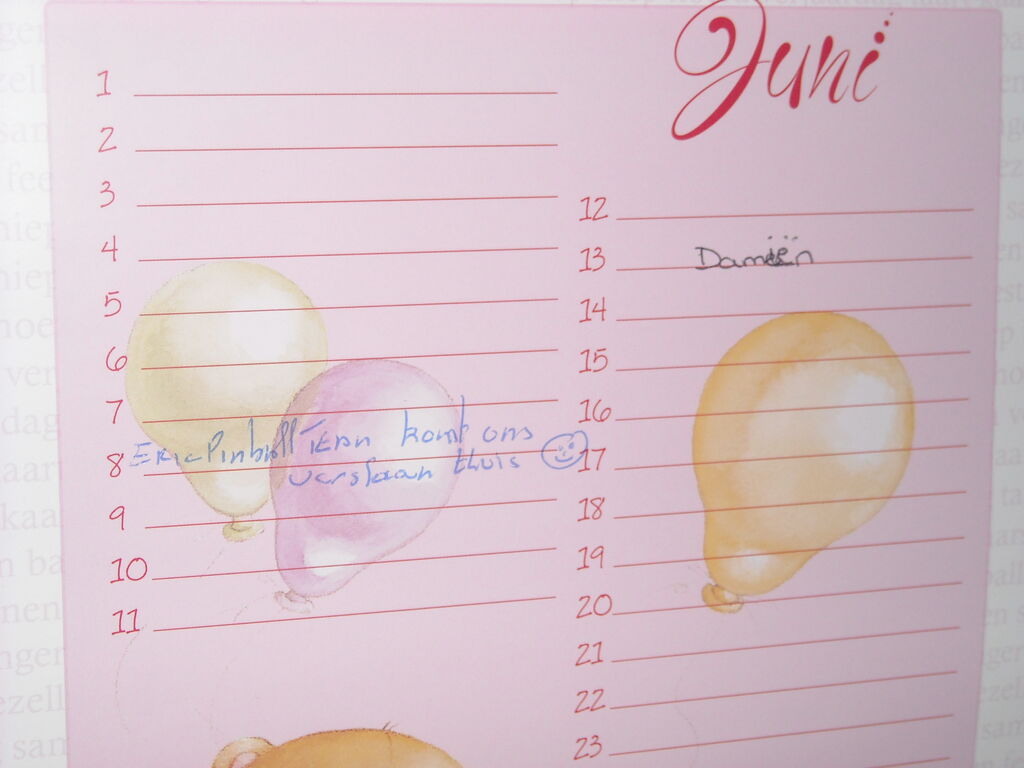 Juni
1
2
3
4
5
6
7
8 Eric Pinball komt ons
verslaan thuis
9
10
11
12
13 Damiën
14
15
16
17
18
19
20
21
22
23